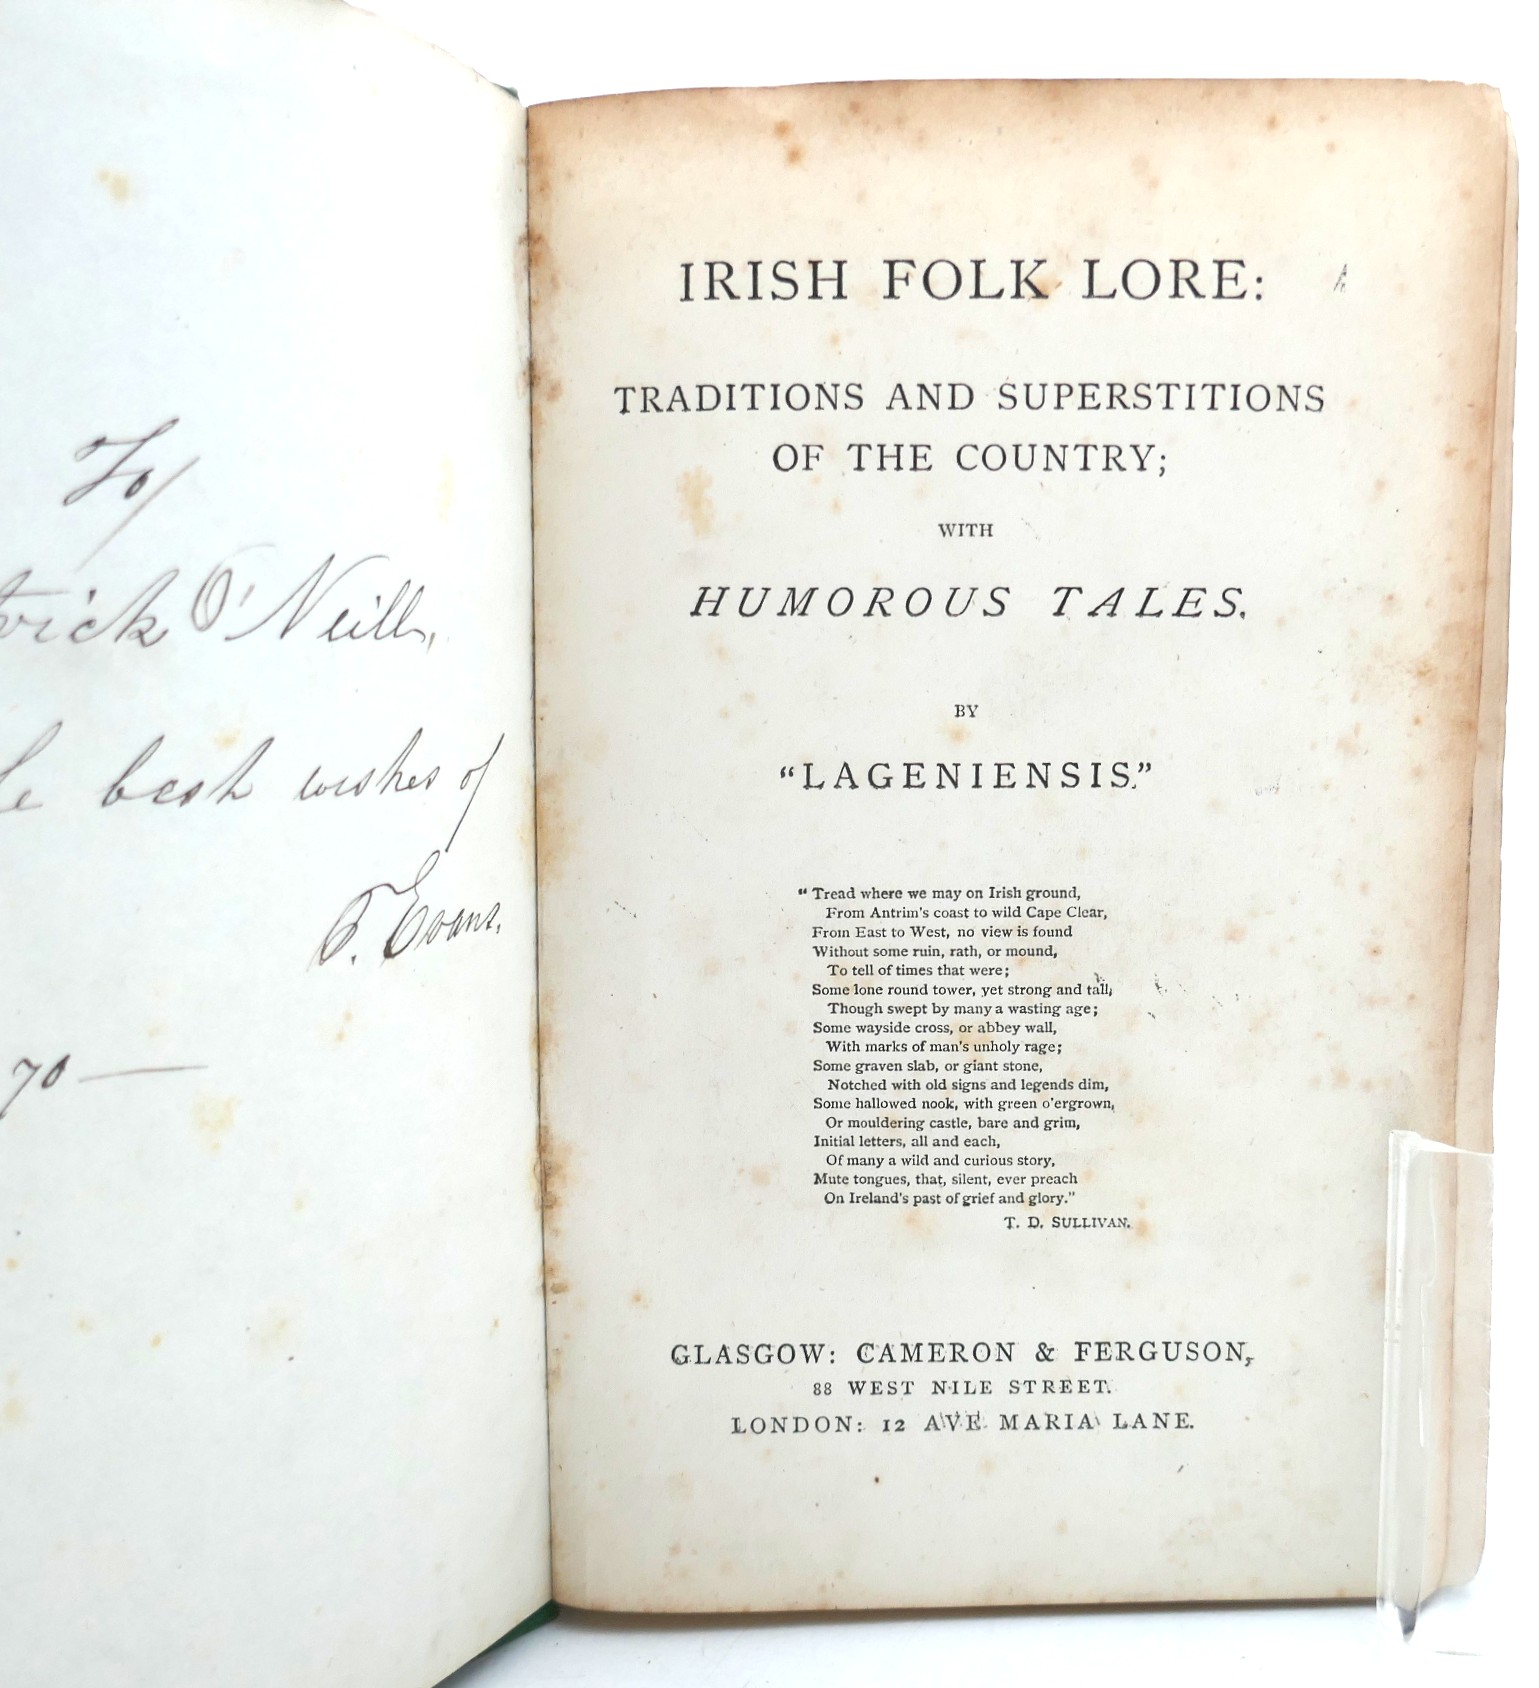 To/
trick O'Neill,
best wishes of
T. Evans.
70 —
IRISH FOLK LORE:
TRADITIONS AND SUPERSTITIONS
OF THE COUNTRY;
WITH
HUMOROUS TALES.
BY
"LAGENIENSIS."
"Tread where we may on Irish ground,
From Antrim's coast to wild Cape Clear,
From East to West, no view is found
Without some ruin, rath, or mound,
To tell of times that were;
Some lone round tower, yet strong and tall,
Though swept by many a wasting age;
Some wayside cross, or abbey wall,
With marks of man's unholy rage;
Some graven slab, or giant stone,
Notched with old signs and legends dim,
Some hallowed nook, with green o'ergrown,
Or mouldering castle, bare and grim,
Initial letters, all and each,
Of many a wild and curious story,
Mute tongues, that, silent, ever preach
On Ireland's past of grief and glory."
T. D. SULLIVAN.
GLASGOW: CAMERON & FERGUSON,
88 WEST NILE STREET.
LONDON: 12 AVE MARIA LANE.